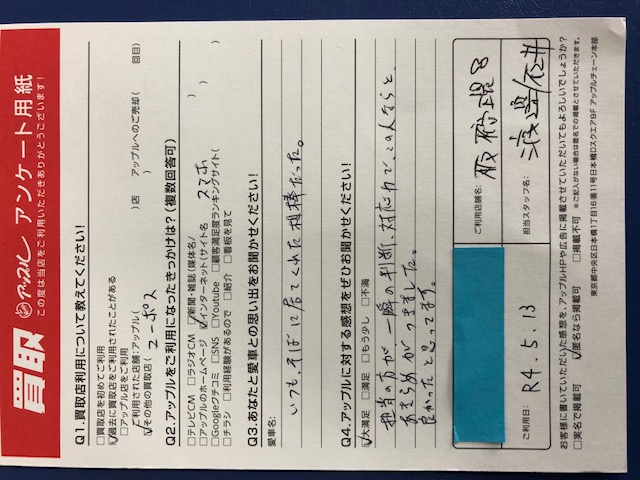 買取 アップル アンケート用紙
この度は当店をご利用いただきありがとうございます！
Q1.買取店利用について教えてください!
□買取店を初めてご利用
☑過去に買取店をご利用されたことがある
□アップル店をご利用
ご利用された店舗:アップル( )店 アップルへのご売却( 回目)
☑その他の買取店( ユーポス )
Q2.アップルをご利用になったきっかけは?(複数回答可)
□テレビCM □ラジオCM ☑新聞・雑誌(媒体名/ )
□アップルのホームページ ☑インターネット(サイト名 スマホ )
□Googleクチコミ □SNS □Youtube □顧客満足度ランキングサイト( )
□チラシ □利用経験があるので □紹介 □看板を見て
Q3.あなたと愛車との思い出をお聞かせください!
愛車名:
いつも、そばに居てくれた相棒だった。
Q4.アップルに対する感想をぜひお聞かせください!
☑大満足 □満足 □もう少し □不満
担当の方が一瞬の判断、対応力で、この人ならと、
あきらめがつきました。
良かったと思ってます。
ご利用日: R4.5.13
ご利用店舗名:
担当スタッフ名:
お客様に書いていただいた感想を、アップルHPや広告に掲載させていただいてもよろしいでしょうか?
□実名で掲載可 ☑匿名なら掲載可 □掲載不可 ※ご記入がない場合は匿名での掲載とさせていただきます。
東京都中央区日本橋1丁目16番11号日本橋Dスクエア9F アップルチェーン本部